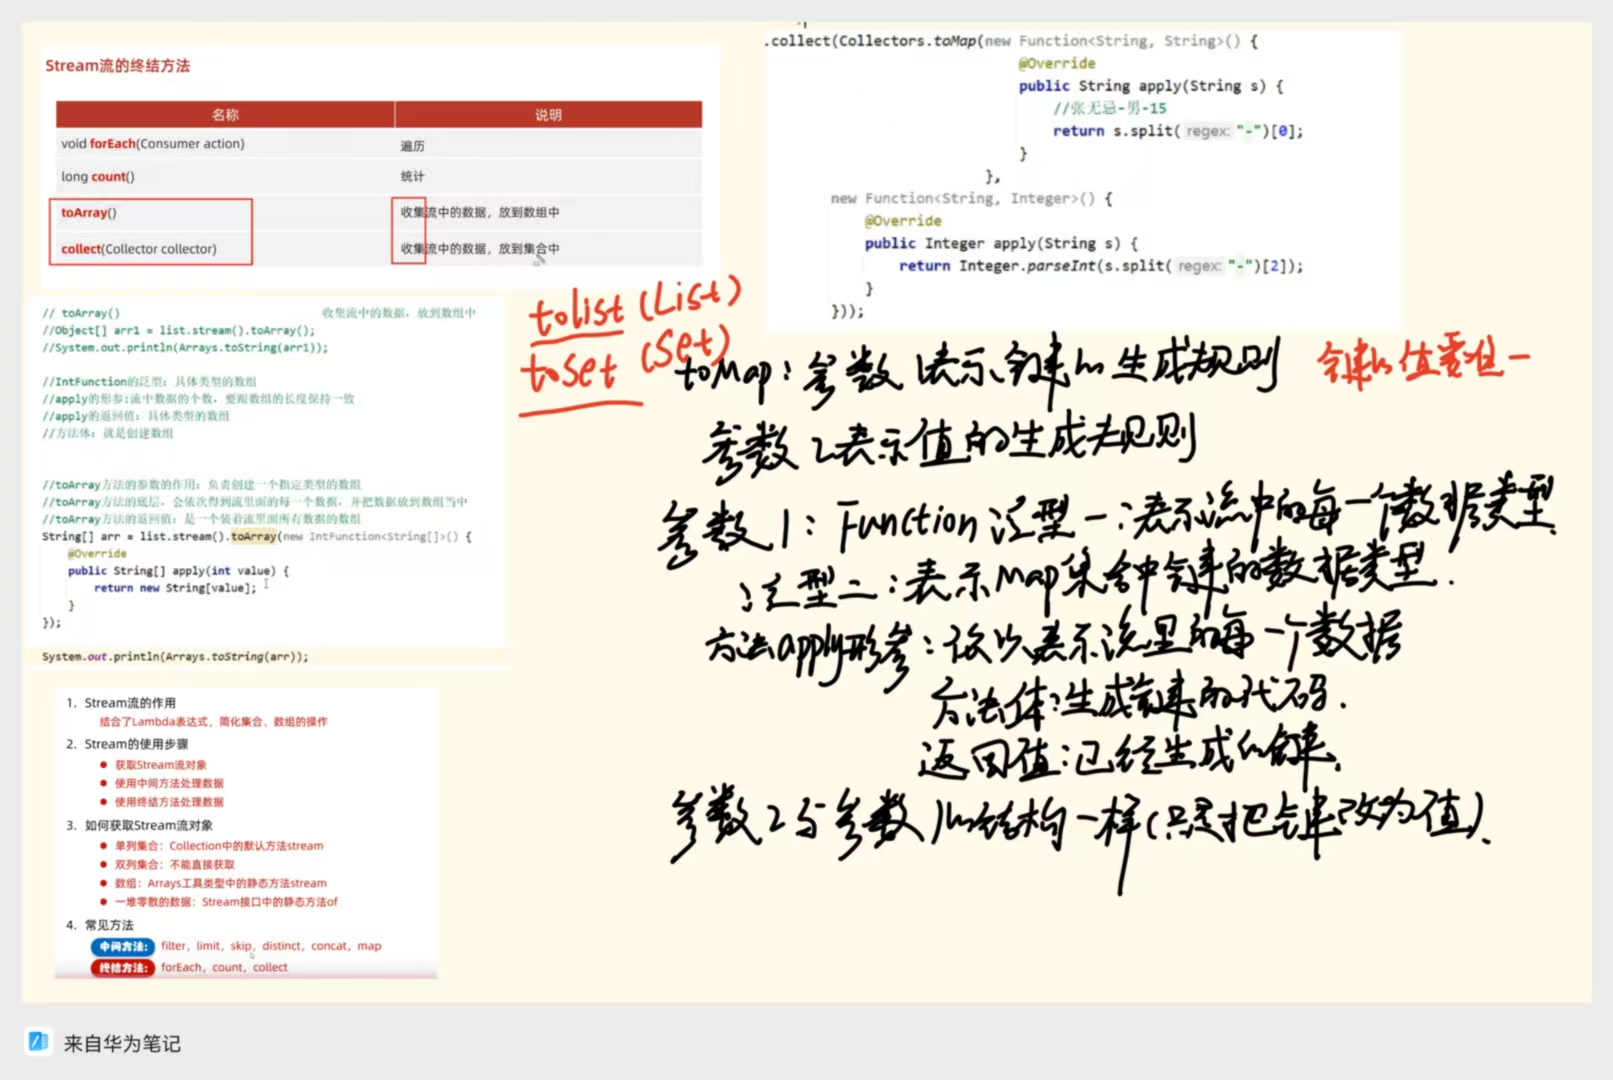 Stream流的终结方法
名称 说明
void forEach(Consumer action) 遍历
long count() 统计
toArray() 收集流中的数据，放到数组中
collect(Collector collector) 收集流中的数据，放到集合中
// toArray() 收集流中的数据，放到数组中
//Object[] arr1 = list.stream().toArray();
//System.out.println(Arrays.toString(arr1));
//IntFunction的泛型：具体类型的数组
//apply的形参:流中数据的个数，要跟数组的长度保持一致
//apply的返回值：具体类型的数组
//方法体：就是创建数组
//toArray方法的参数的作用：负责创建一个指定类型的数组
//toArray方法的底层，会依次得到流里面的每一个数据，并把数据放到数组当中
//toArray方法的返回值：是一个装着流里面所有数据的数组
String[] arr = list.stream().toArray(new IntFunction<String[]>() {
@Override
public String[] apply(int value) {
return new String[value];
}
});
System.out.println(Arrays.toString(arr));
1. Stream流的作用
结合了Lambda表达式，简化集合、数组的操作
2. Stream的使用步骤
● 获取Stream流对象
● 使用中间方法处理数据
● 使用终结方法处理数据
3. 如何获取Stream流对象
● 单列集合：Collection中的默认方法stream
● 双列集合：不能直接获取
● 数组：Arrays工具类型中的静态方法stream
● 一堆零散的数据：Stream接口中的静态方法of
4. 常见方法
中间方法: filter，limit，skip，distinct，concat，map
终结方法: forEach，count，collect
.collect(Collectors.toMap(new Function<String, String>() {
@Override
public String apply(String s) {
//张无忌-男-15
return s.split( regex: "-")[0];
}
},
new Function<String, Integer>() {
@Override
public Integer apply(String s) {
return Integer.parseInt(s.split( regex: "-")[2]);
}
}));
tolist (List)
toset (Set)
toMap：参数1表示键的生成规则 键的值需唯一
参数2表示值的生成规则
参数1：Function泛型一：表示流中的每一个数据类型.
泛型二：表示Map集合中键的数据类型.
方法apply形参：依次表示流里的每一个数据
方法体：生成键的代码.
返回值：已经生成的键.
参数2与参数1的结构一样(只是把键改为值).
来自华为笔记